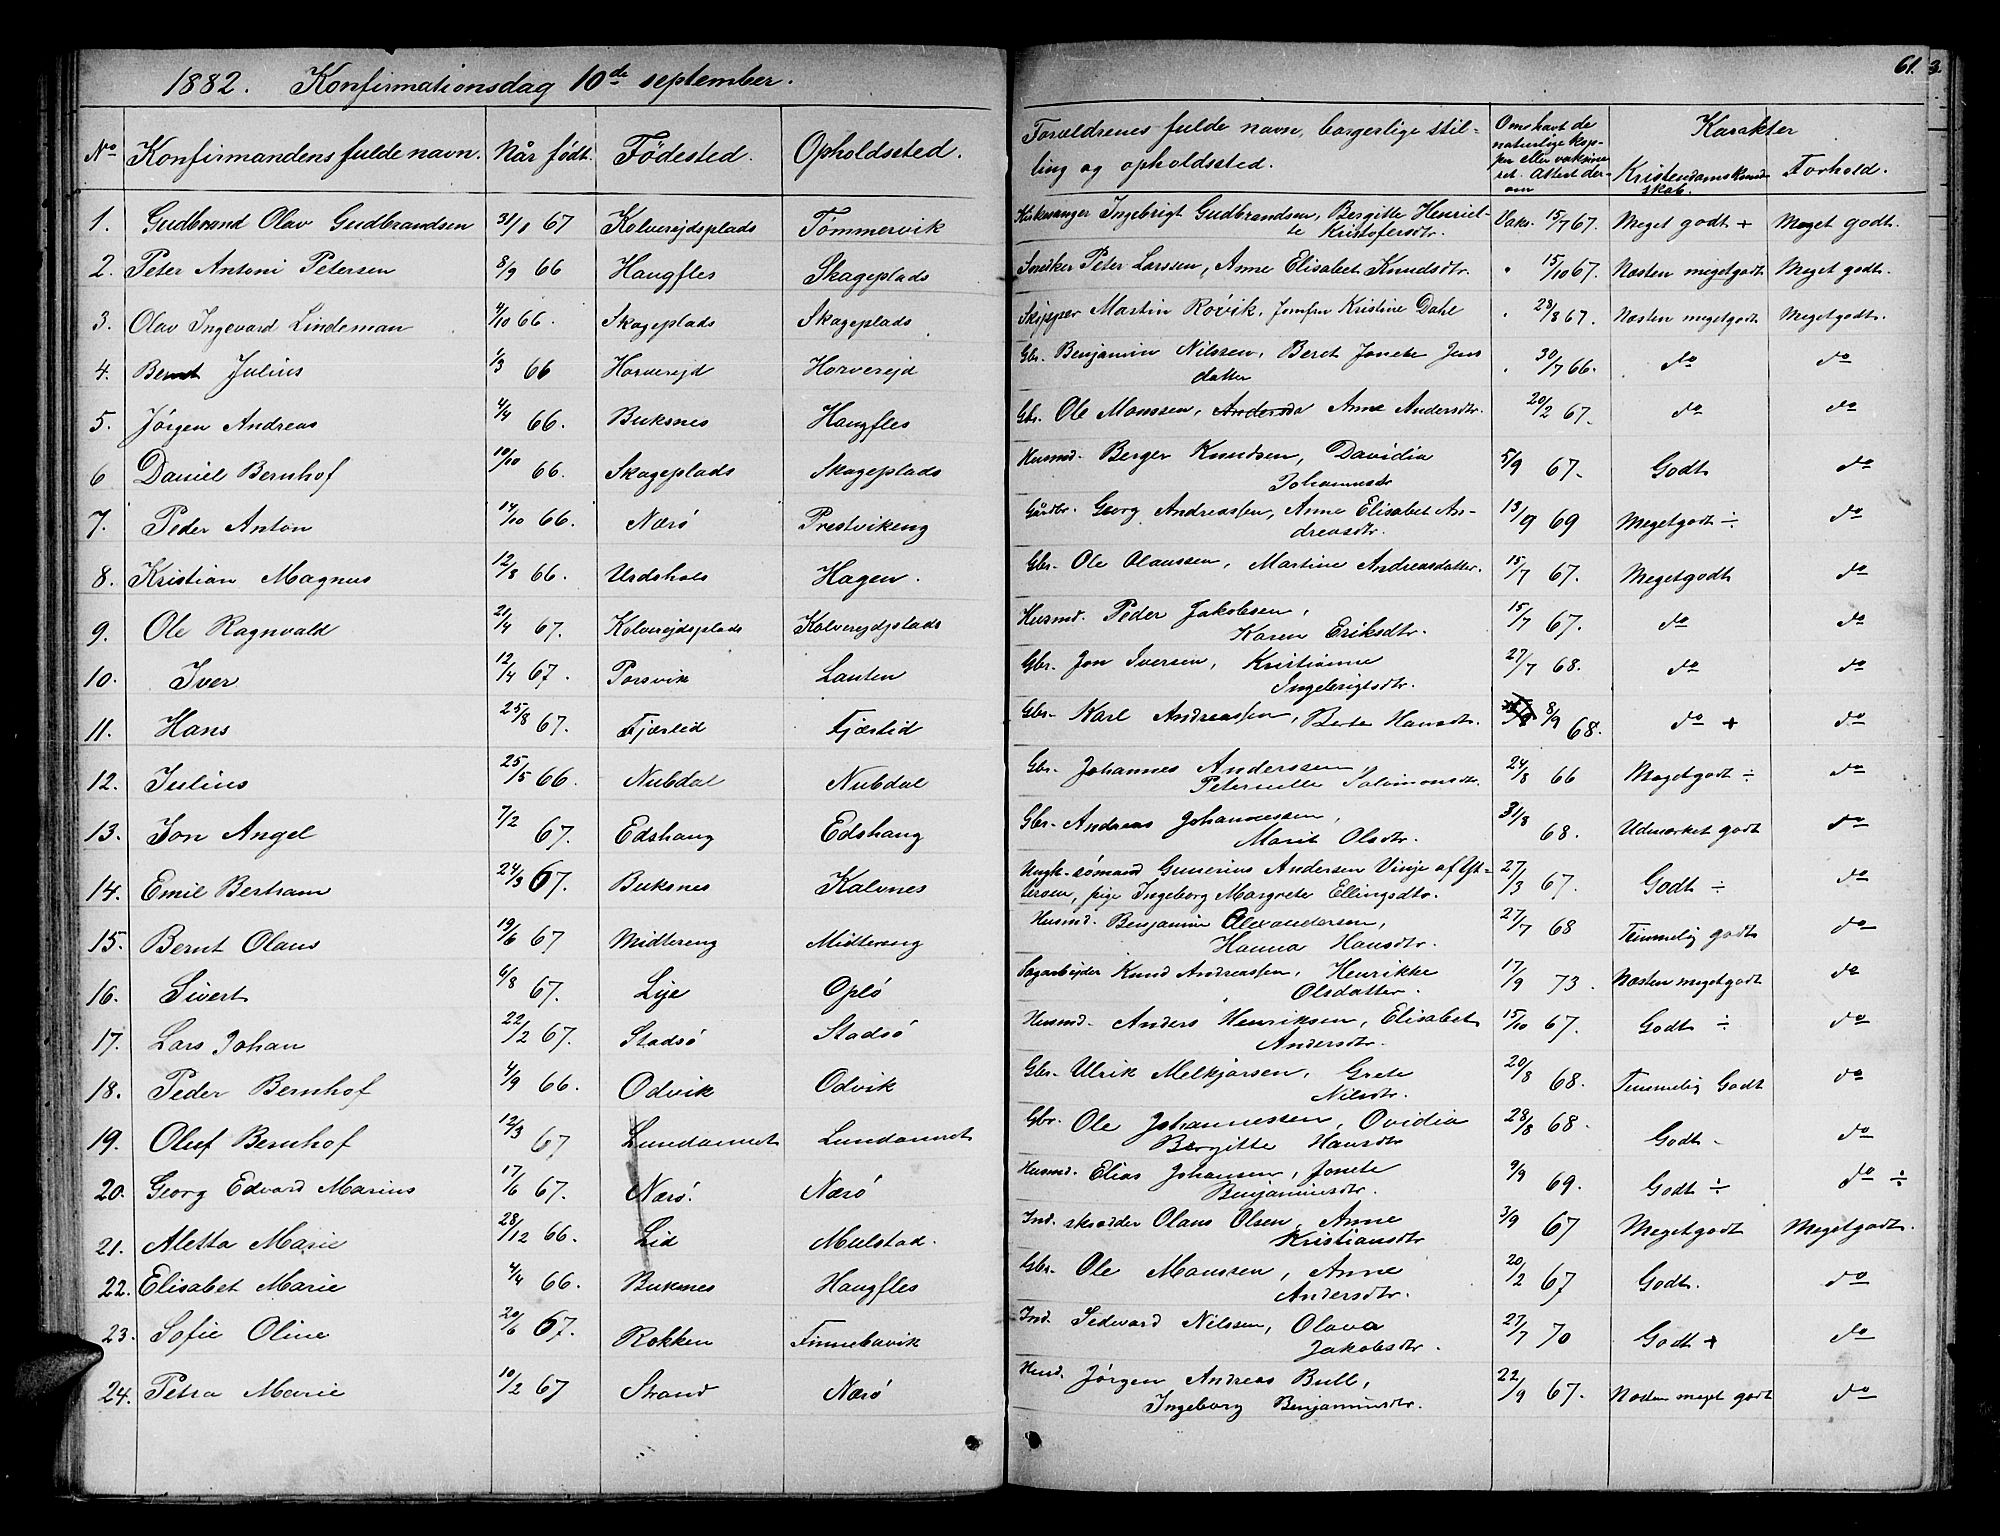 1882. Konfirmationsdag 10de september.
61.
No Konfirmandens fulde navn. Når født. Fødested. Opholdssted. Forældrenes fulde navn, borgerlige stilling og opholdssted. Om havt de naturlige kopper eller vaksineret. Attest derom Karakter Kristendomskundskab. Forhold.
1. Gudbrand Olav Gudbrandsen 31/1 67 Kolverejdsplads Tømmervik Kirkesanger Ingebrigt Gudbrandsen, Bergitte Henriette Kristofersdtr. Vaks. 15/7 67. Meget godt + Meget godt.
2. Peter Antoni Petersen 8/9 66 Haugfles Skageplads Snedker Peter Larssen, Anne Elisabet Knudsdtr. " 15/10 67. Næsten megetgodt Meget godt.
3. Olav Ingevard Lindeman 4/10 66. Skageplads Skageplads Skipper Martin Rørvik, Jomfru Kristine Dahl " 28/8 67. Næsten megetgodt Megetgodt.
4. Bernt Julius 1/3 66 Horverejd Horverejd Gbr. Benjamin Nilssen, Beret Jonete Jensdatter " 30/7 66. do do
5. Jørgen Andreas 4/4 66. Buksnes Haugfles Gbr. Ole Monssen, Anne Andersdtr. 20/2 67. do do
6 Daniel Bernhof 10/10 66. Skageplads Skageplads Husmd. Berger Knudsen, Davidia Johannesdtr 5/9 67. Godt do
7. Peder Anton 14/10 66. Nærø Prestvikeng Gårdbr. Georg Andreassen, Anne Elisabet Andreasdtr. 13/9 69 Megetgodt ÷ do
8. Kristian Magnus 12/8 66. Urdshals Hagen. Gbr. Ole Olaussen, Martine Andreasdatter. 15/7 67. Megetgodt do
9. Ole Ragnvald 21/4 67. Kolverejdsplads Kolverejdplads Husmd. Peder Jakobsen, Karen Eriksdtr. 15/7 67. do do
10. Iver 12/4 67. Torsvik Lauten Gbr. Jon Iversen, Kristianna Ingebrigtsdtr. 27/7 68. do do
11. Hans 25/8 67. Fjærlid Fjærlid Gbr. Karl Andreassen, Berte Hansdtr. 8/9 68. do + do
12. Julius 25/5 66. Nubdal Nubdal Gbr. Johannes Anderssen, Peternille Salomonsdtr. 24/8 66 Megetgodt ÷ do
13. Jon Angel 7/2 67. Edshaug Edshaug Gbr. Andreas Johannessen, Marit Olsdtr. 31/8 68. Udmærket godt do
14. Emil Bertram 24/3 67. Buksnes Kalvnes Ungk. sømand Gunerius Andersen Vinje af Ytterøen, pige Ingeborg Margrete Ellingsdtr. 27/3 67. Godt ÷ do
15. Bernt Olaus 19/6 67 Midtereng Midtereng Husmd. Benjamin Alexandersen, Hanna Hansdtr. 27/7 68 Temmelig godt do
16. Sivert 6/8 67. Lye Oplø Sagarbejder Knud Andreassen, Henrikke Olsdatter. 17/9 73. Næsten megetgodt do
17. Lars Johan 22/2 67. Stadsø Stadsø Husmd. Anders Henriksen, Elisabet Andersdtr. 15/10 67. Godt ÷ do
18. Peder Bernhof 4/9 66. Odvik Odvik Gbr. Ulrik Melkjorsen, Grete Nilsdtr. 20/8 68. Temmelig Godt do
19. Oluf Bernhof 12/3 67 Lundamnet Lundamnet Gbr. Ole Johannessen, Ovidia Bergitte Hansdtr 28/8 68. Godt. do
20. Georg Edvard Marius 17/6 67. Nærø. Nærø Husmd. Elias Johansen, Jonete Benjaminsdtr. 9/9 69. Godt ÷ do ÷
21. Aletta Marie 28/12 66. Lid Mulstad. Ind. skrædder Olaus Olsen, Anne Kristiansdtr 3/9 67 Megetgodt Megetgodt.
22. Elisabet Marie 4/4 66. Buksnes Haugfles Gbr. Ole Monssen, Anne Andersdtr. 20/2 67 Godt. do
23. Sofie Oline 20/6 67. Rokken Finnebavik Ind. Sedevard Nilssen, Olava Jakobsdtr. 27/7 70 Godt + do
24. Petra Marie 10/2 67 Strand Nærø Husd. Jørgen Andreas Bull, Ingeborg Benjaminsdtr. 22/9 67. Næsten meget godt do